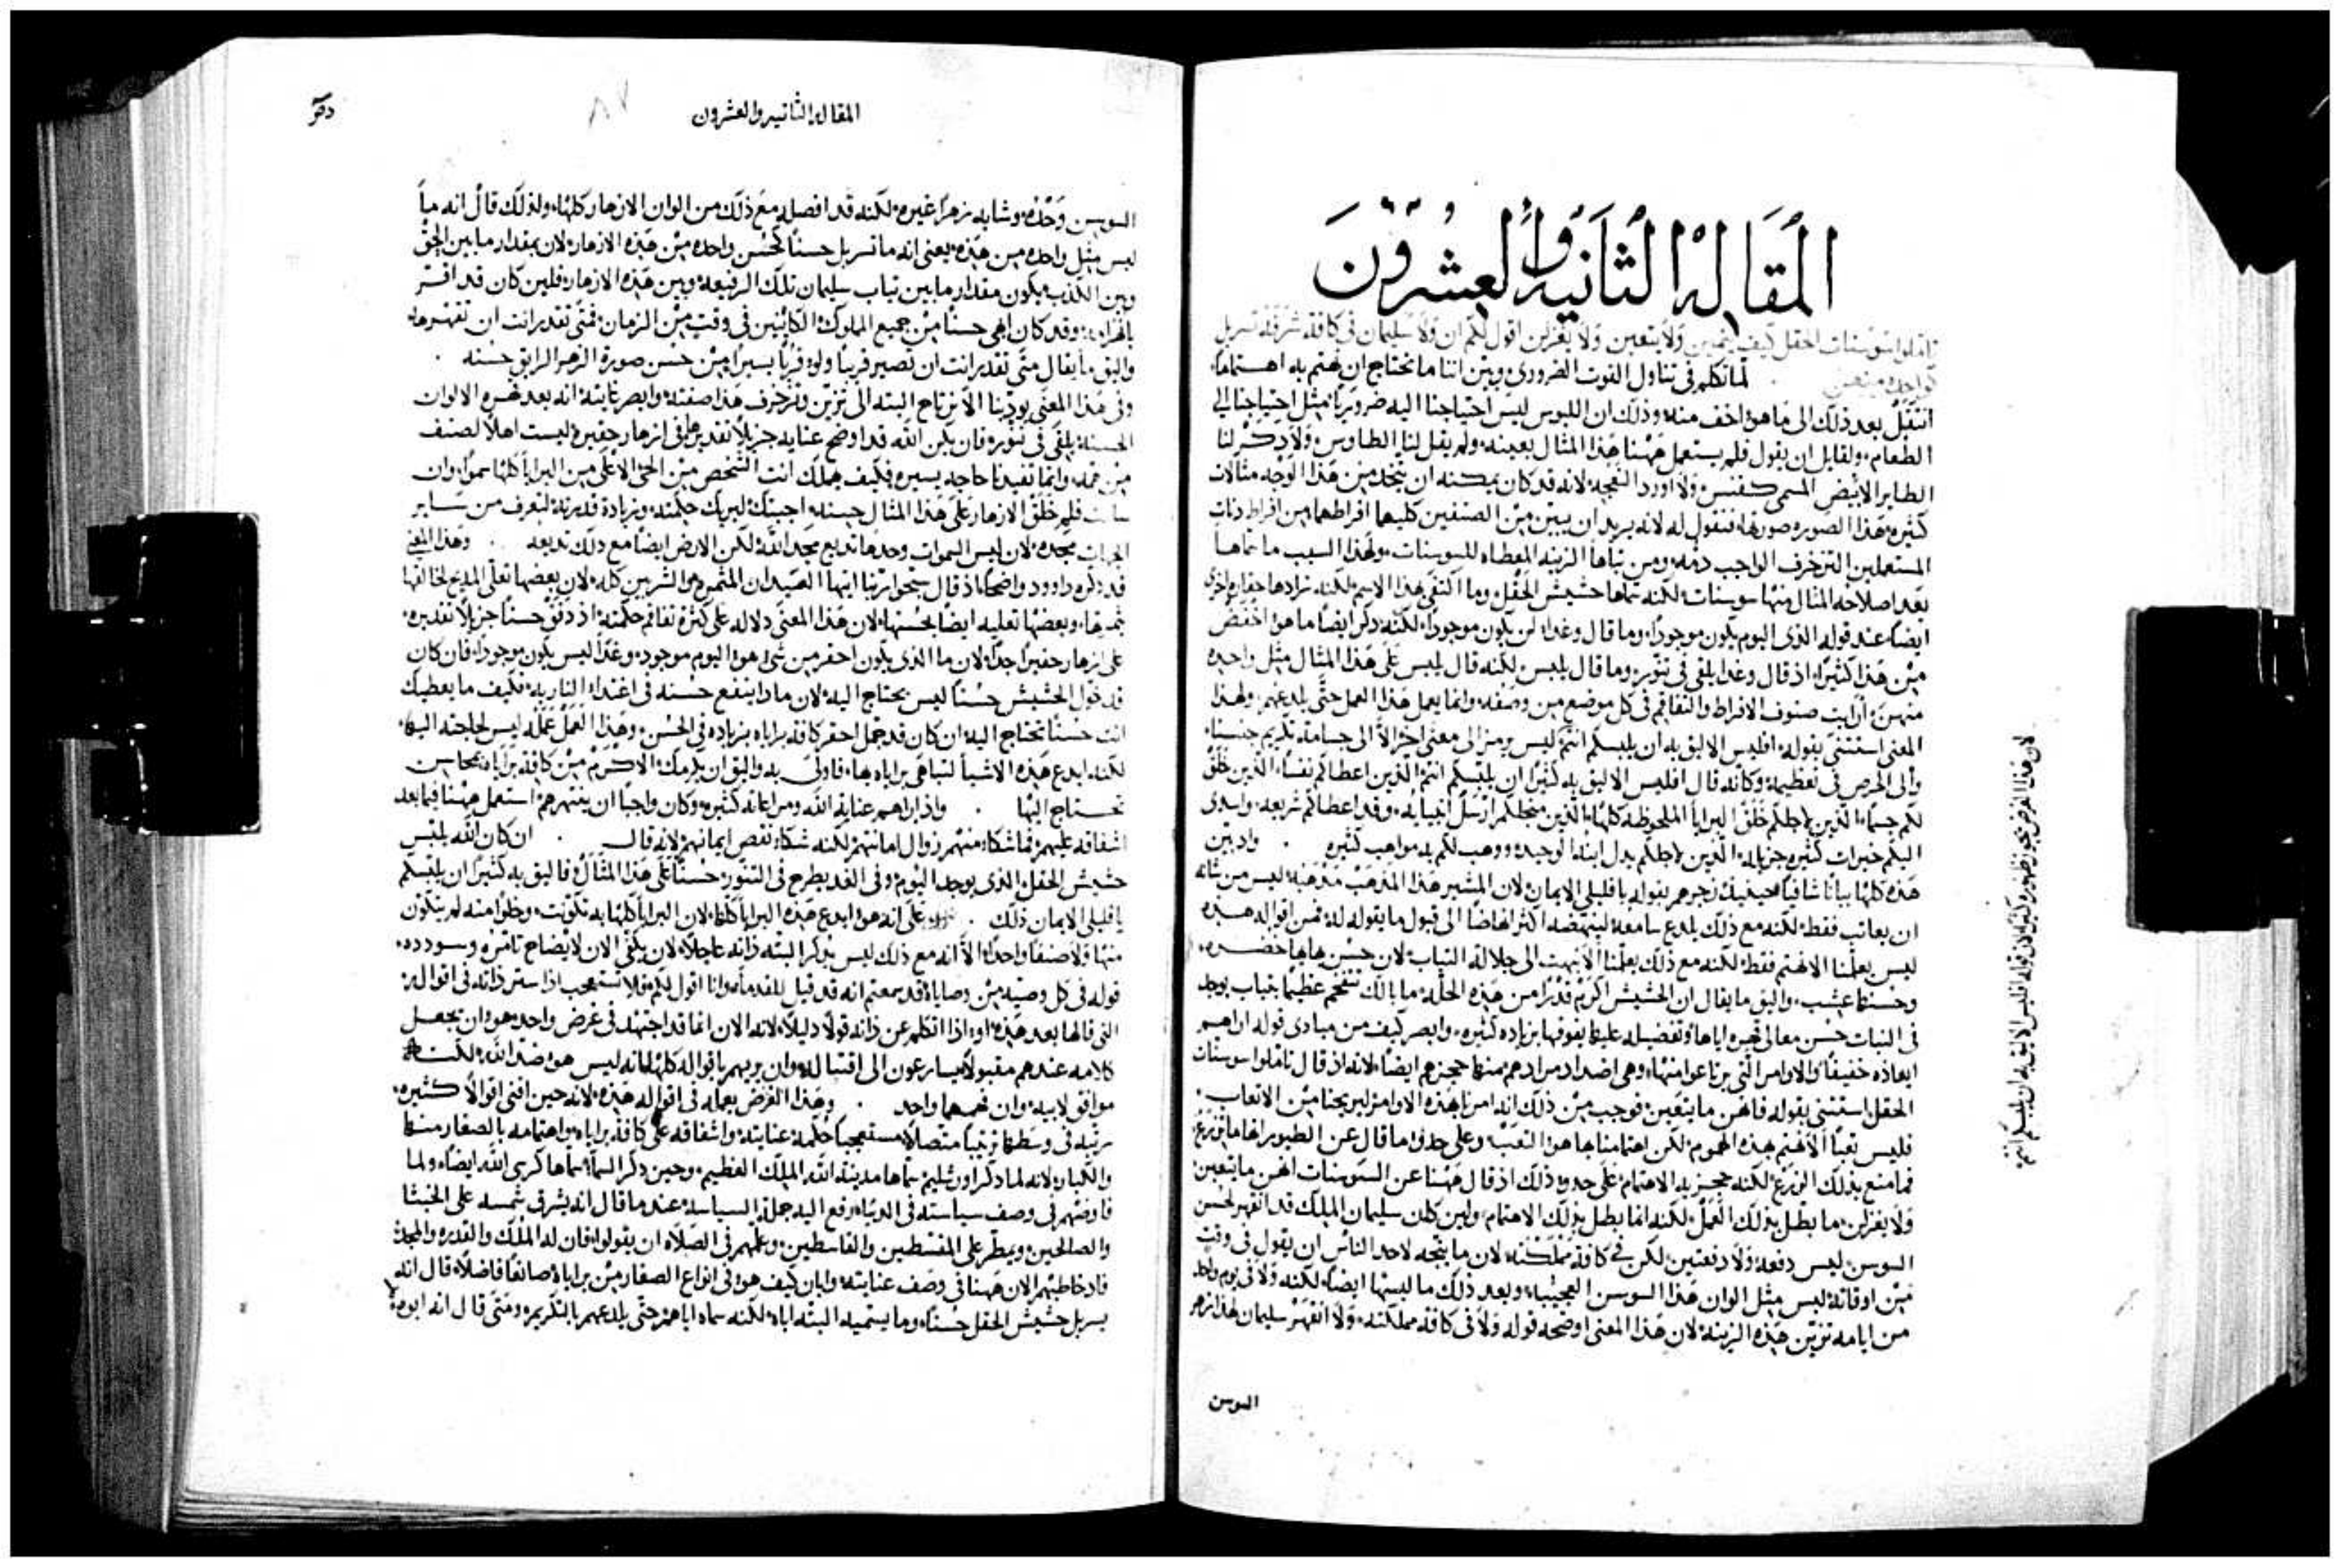 المقاله الثانيه والعشرون
تاملوا سوسنات الحقل كيف ينمين ولا يتعبن ولا يغزلن اقول لكم ان ولا سليمان في كافة شرفه تسربل
كواحده منهن
لما تكلم في تناول القوت الضروري وبين اننا ما نحتاج ان نهتم به اهتماما
انتقل بعد ذلك الى ما هو اخف منه وذلك ان اللبوس ليس احتياجنا اليه ضروريا مثل احتياجنا الي
الطعام ولقايل ان يقول فلم يستعمل ههنا هذا المثال بعينه ولم يقل لنا الطاوس ولا ذكر لنا
الطاير الابيض المسمى ققنس ولا اورد النعجه لانه قد كان يمكنه ان يتخذ من هذا الوجه مثالات
كثيره هذا الصوره صورتها فنقول له لانه يريد ان يبين من الصنفين كليهما افراطهما من افراط دناة
المستعملين التزخرف الواجب ذمه ومن تناها الزينه المعطاه للسوسنات ولهذا السبب ما سماها
بعد اصلاحه المثال منها سوسنات لكنه سماها حشيش الحقل وما اكتفى بهذا الاسم لكنه زادها حقاره اخرى
ايضا عند قوله الذى اليوم يكون موجودا وما قال وغدا لن يكون موجودا لكنه ذكر ايضا ما هو اخفض
من هذا كثيرا اذ قال وغدا يلقى في تنور وما قال يلبس لكنه قال يلبس على هذا المثال مثل واحده
منهن ارايت صنوف الافراط والتفاقم في كل موضع من وصفه وانما يعمل هذا العمل حتى يلدغهم ولهذا
المعنى استثنى بقوله افليس الاليق به ان يلبسكم انتم ليس يرمز الى معنى اخر الا الى جسامة تكريم جنسنا
وألى الحرص في تعظيمه وكانه قال افليس الاليق به كثيرا ان يلبسكم انتم الذين اعطاكم نفسا الذين خلق
لكم جسما الذين لاجلكم خلق البرايا الملحوظه كلها الذين من اجلكم ارسل انبيايه وقد اعطاكم شريعه واسدى
اليكم خيرات كثيره جزيله الذين لاجلكم بذل ابنه الوحيد ووهب لكم به مواهب كثيره . واذ بين
هذه كلها بيانا شافيا فحينيذ زجرهم بقوله يا قليلى الايمان لان المشير هذا المذهب مذهبه ليس من شانه
ان يعاتب فقط لكنه مع ذلك يلدع سامعه لينهضه اكثر انهاضا الى قبول ما يقوله له فمن اقواله هذه
ليس يعلمنا الا نهتم فقط لكنه مع ذلك يعلمنا الا نبهت الى جلالة الثياب لان حسن بهايها خضره
وحسنها عشب واليق ما يقال ان الحشيش اكرم قدرا من هذه الحله ما بالك تتفخم عظيما بثياب يوجد
في النبات حسن معالي تحيره اياها وتفضيله عليها يفوقها بزياده كثيره وابصر كيف من مبادى قوله اراهم
ايعاذه خفيفا والاوامر التي يرتاعوا منها وهى اضداد مرادهم منها حجزهم ايضا لانه اذ قال تاملوا سوسنات
الحقل استثنى بقوله فانهن ما يتعبن فوجب من ذلك انه امرنا بهذه الاوامر ليريحنا من الاتعاب
فليس تعبا الا نهتم بهذه الهموم لكن اهتمامنا بها هو التعب وعلى حذو ما قال عن الطيور انها ما تزرع
فما منع بذلك الزرع لكنه حجز به الاهتمام على حدو ذلك اذ قال ههنا عن السوسنات انهن ما يتعبن
ولا يغزلن ما بطل بذلك العمل لكنه انما بطل بذلك الاهتمام ولين كان سليمان الملك قد انقهر لحسن
السوسن ليس دفعه ولا دفعتين لكن في كافة مملكته لان ما يتجه لاحد الناس ان يقول في وقت
من اوقاته لبس مثل الوان هذا السوسن العجيبه وبعد ذلك ما لبسها ايضا لكنه ولا في يوم واحد
من ايامه تزين هذه الزينه لان هذا المعنى اوضحه قوله ولا في كافة مملكته ولا انقهر سليمان لهذا زهر
السوسن
لان هذا الغرض يجوز ظهوره كثيرا من قوله افليس الاليق به ان يلبسكم انتم
المقاله الثانيه والعشرون
٨٧
السوسن وحده وشابه زهرا غيره لكنه قد افصله مع ذلك من الوان الازهار كلها ولذلك قال انه ما
لبس مثل واحده من هذه يعنى انه ما تسربل حسنا كحسن واحده من هذه الازهار لان بمقدار ما بين الحق
وبين الكذب يكون مقدار ما بين ثياب سليمان تلك الرفيعه وبين هذه الازهار فلين كان قد اقر
بانهزامه وقد كان ابهى حسنا من جميع الملوك الكاينين في وقت من الزمان فمتى تقدر انت ان تقهرها
واليق ما يقال متى تقدر انت ان تصير قريبا ولو قربا يسيرا من حسن صورة الزهر الرايق حسنه .
وفى هذا المعنى يودبنا الا نرتاح البته الى تزين وتزخرف هذا صفته وابصر غايته انه بعد قهره الالوان
الحسنه يلقى في تنوره فان يكن الله قد اوضح عنايه جزيلا تقديرها في ازهار حقيره ليست اهلا لصنف
من همه وانما تفيدنا حاجه يسيره فكيف يهملك انت الشخص من الحى الاعلى من البرايا كلها سموا وان
سالت فلم خلق الازهار على هذا المثال حسنه اجبتك ليريك حكمته وزيادة قدرته لتعرف من ساير
الجهات مجده لان ليس السموات وحدها تذيع مجد الله لكن الارض ايضا مع ذلك تذيعه . وهذا المعنى
قد ذكره داوود واضحا اذ قال سبحوا ربنا ايتها العيدان المثمره والشربين كله لان بعضها تعلى المديح لخالقها
بثمرتها وبعضها تعليه ايضا بحسنها لان هذا المعنى دلاله على كثرة تفاقم حكمته اذ دفق حسنا جزيلا تقديره
على ازهار حقيرا جدا لان ما الذى يكون احقر من شى هو اليوم موجود وغدا ليس يكون موجودا فان كان
قد خول الحشيش حسنا ليس يحتاج اليه لان ماذا ينفع حسنه في اغتذاء النار به فكيف ما يعطيك
انت حسنا تحتاج اليه ان كان قد جمل احقر كافة براياه بزياده في الحسن وهذا العمل عمله ليس لحاجته اليها
لكنه ابدع هذه الاشيا لتباهى براياه بها فاولى به واليق ان يكرمك الاكرم من كافة براياه بمحاسن
تحتاج اليها . واذ اراهم عناية الله ومراعاته كثيره وكان واجبا ان ينتهرهم استعمل ههنا فيما بعد
اشفاقه عليهم فما شكا منهم زوال امانتهم لكنه شكا نقص ايمانهم لانه قال . ان كان الله يلبس
حشيش الحقل الذى يوجد اليوم وفى الغد يطرح في التنور حسنا على هذا المثال فاليق به كثيرا ان يلبسكم
يا قليلى الايمان ذلك . على انه هو ابدع هذه البرايا كلها لان البرايا كلها به تكونت وخلوا منه لم يتكون
منها ولا صنفا واحدا الا انه مع ذلك ليس يذكر البته ذاته عاجلا لان يكفى الان لايضاح تامره وسودده
قوله في كل وصيه من وصاياه قد سمعتم انه قد قيل للقدما وانا اقول لكم فلا تستعجب اذا ستر ذاته في اقواله
التى قالها بعد هذه او اذا تكلم عن ذاته قولا ذليلا لانه الان انما قد اجتهد في غرض واحد هو ان يجعل
كلامه عندهم مقبولا يسارعون الى اقتباله وان يريهم باقواله كلها انه ليس هو ضد الله لكنه
موافق لابيه وان فهمهما واحد . وهذا الغرض يعمله في اقواله هذه لانه حين افنى اقوالا كثيره
رتبه في وسطها ترتيبا متصلا مستعجبا حكمة عنايته واشفاقه على كافة براياه واهتمامه بالصغار منها
والكبار لانه لما ذكر اورشليم سماها مدينة الله الملك العظيم وحين ذكر السما سماها كرسى الله ايضا ولما
فاوضهم في وصف سياسته في الدنيا رفع اليه جملة السياسه عند ما قال انه يشرق شمسه على الخبثا
والصالحين ويمطر على المقسطين والقاسطين وعلمهم في الصلاه ان يقولوا فان له الملك والقدره والمجد
فاذ خاطبهم الان ههنا في وصف عنايته وابان كيف هو في انواع الصغار من براياه صانعا فاضلا قال انه
يسربل حشيش الحقل حسنا وما يسميه البته اباه لكنه سماه اباهم حتى يلدعهم بالتكريم ومتى قال انه ابوهم